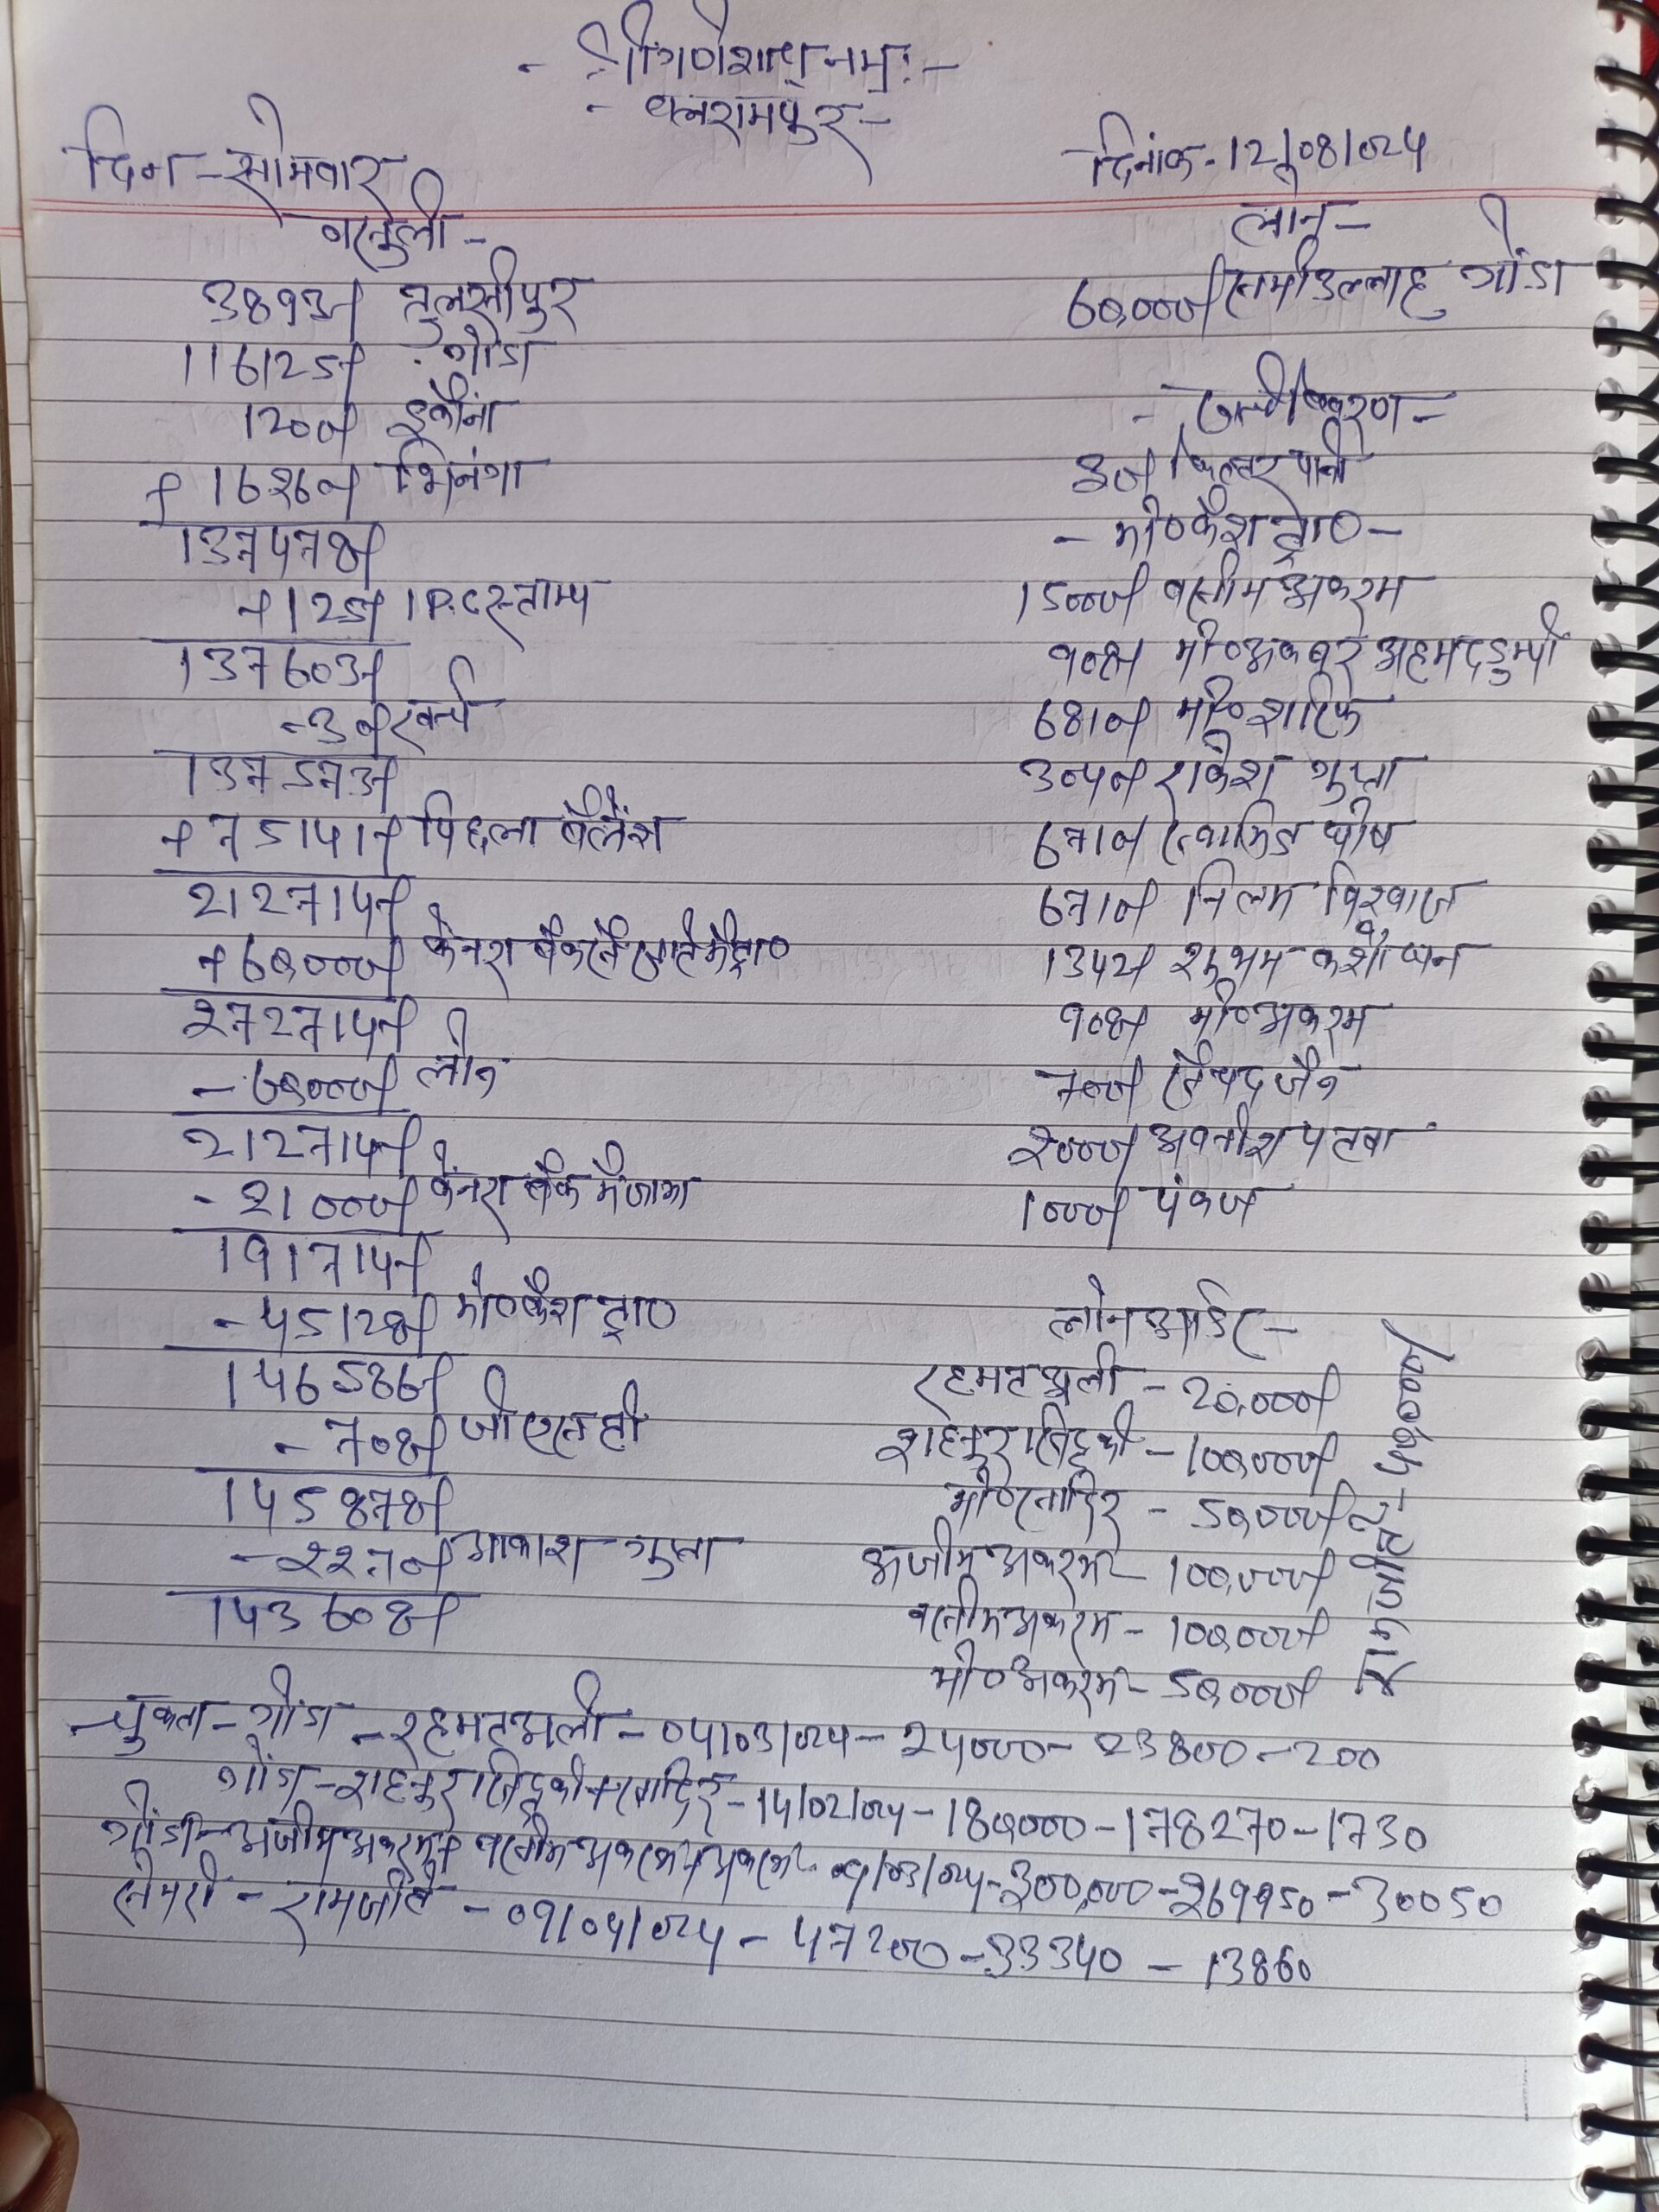 - श्री गणेशाय नमः -
- बलरामपुर -
दिन - सोमवार
दिनांक - 12/08/024
वसुली -
3893/- तुलसीपुर
116125/- गोंडा
1200/- इकौना
+ 16260/- भिनंगा
137478/-
+ 125/- 1 P.C स्ताम्प
137603/-
- 30/- खर्च
137573/-
+ 75141/- पिछला बैलेंश
212714/-
+ 60,000/- केनरा बैंक से खाते में ट्रा०
272714/-
- 60,000/- लोन
212714/-
- 21000/- केनरा बैंक में जामा
191714/-
- 45128/- मो० कैश ट्रा०
146586/-
- 708/- जीएसटी
145878/-
- 2270/- आकाश गुप्ता
143608/-
लोन -
60,000/- समीउल्लाह गोंडा
30/- फिल्टर पानी
- मो० कैश ट्रा० -
15000/- वसीम अकरम
908/- मो० अकबर अहमद डुम्पी
6810/- मो० शारिफ
3040/- राकेश गुप्ता
6710/- घोष
6710/- निलम विश्वास
1342/- शुभम
908/- मो० अकरम
700/- सैय्यद जैन
2000/- अवनीश पटवा
1000/- पंकज
लोन आर्डर -
रहमत अली - 20,000/-
शाहनुर सिद्दकी - 100,000/-
मो० नादिर - 50,000/-
अजीम अकरम - 100,000/-
वसीम अकरम - 100,000/-
मो० अकरम - 50,000/-
रामजीत - 40,000/-
चुकता - गोंडा - रहमत अली - 04/03/024 - 24000 - 23800 - 200
गोंडा - शाहनुर सिद्दकी + नादिर - 14/02/024 - 180,000 - 178270 - 1730
गोंडा - अजीम अकरम + वसीम अकरम + अकरम - 04/03/024 - 300,000 - 269950 - 30050
सेमरी - रामजीत - 09/04/024 - 47200 - 33340 - 13860